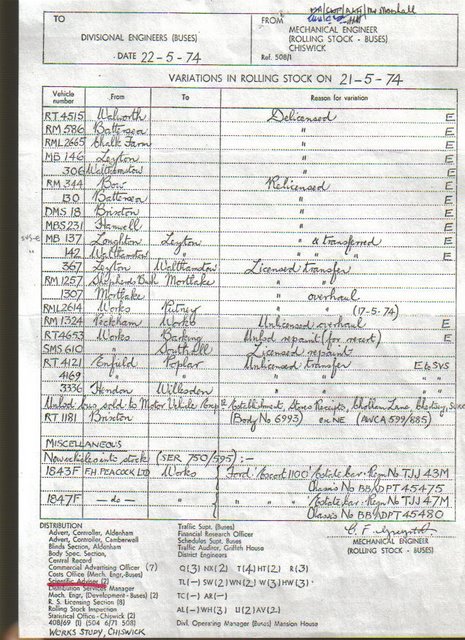 TO
FROM
DIVISIONAL ENGINEERS (BUSES)
MECHANICAL ENGINEER
(ROLLING STOCK - BUSES)
CHISWICK
DATE 22-5-74
Ref. 508/1
VARIATIONS IN ROLLING STOCK ON 21-5-74
Vehicle number From To Reason for variation
RT 4515 Walworth Delicensed E
RM 586 Battersea " E
RML 2665 Chalk Farm " E
MB 146 Leyton " E
306 Walthamstow " E
RM 344 Bow Relicensed E
130 Battersea " E
DMS 18 Brixton " E
MBS 231 Hanwell " E
SVS-E MB 137 Loughton Leyton " & transferred E
" 142 Walthamstow " " " E
367 Leyton Walthamstow Licensed transfer
RM 1257 Shepherds Bush Mortlake " "
1307 Mortlake " overhaul
RML 2614 Works Putney " " (17-5-74)
RM 1324 Peckham Works Unlicensed overhaul E
RT 4653 Works Barking Unlsd repaint (for recert) E
SMS 610 " Southall Licensed repaint
RT 4121 Enfield Poplar Unlicensed transfer E to SVS
4169 " " " " "
3336 Hendon Willesden " " "
Unlsd bus sold to Motor Vehicle Exp'tl Establishment, Stores Receipts, Lane, Chertsey,
RT 1181 Brixton (Body No 6993) ex NE (AWCA 599/685)
MISCELLANEOUS
New vehicles into stock (SER 750/595) :-
1843F F.H. PEACOCK LTD Works Ford 'Escort 1100' Estate car - Regn No TJJ 43M
Chassis No BB/ADPT 45475
1847F - do - " " Estate car - Regn No TJJ 47M
Chassis No BB/ADPT 45480
MECHANICAL ENGINEER
(ROLLING STOCK - BUSES)
DISTRIBUTION
Advert, Controller, Aldenham
Advert, Controller, Camberwell
Blinds Section, Aldenham
Body Spec. Section,
Central Record
Commercial Advertising Officer (7)
Costs Office (Mech. Engr.-Buses)
Scientific Adviser (2)
Distribution Services Manager
Mech. Engr, (Development - Buses) (2)
R. S. Licensing Section (8)
Rolling Stock Inspection
Statistical Office - Chiswick (2)
408/69 (1) (504 6/71 508)
WORKS STUDY, CHISWICK
Traffic Supt. (Buses)
Financial Research Officer
Schedules Supt. Buses
Traffic Auditor, Griffith House
District Engineers
Q(3) NX(2) T(4) HT(2) R(3)
TL(-) SW(2) WN(2) W(3) HW(3)
TC(-) AR(-)
AL(-) WH(3) U(2) AV(2)
Divl. Operating Manager (Buses) Mansion House